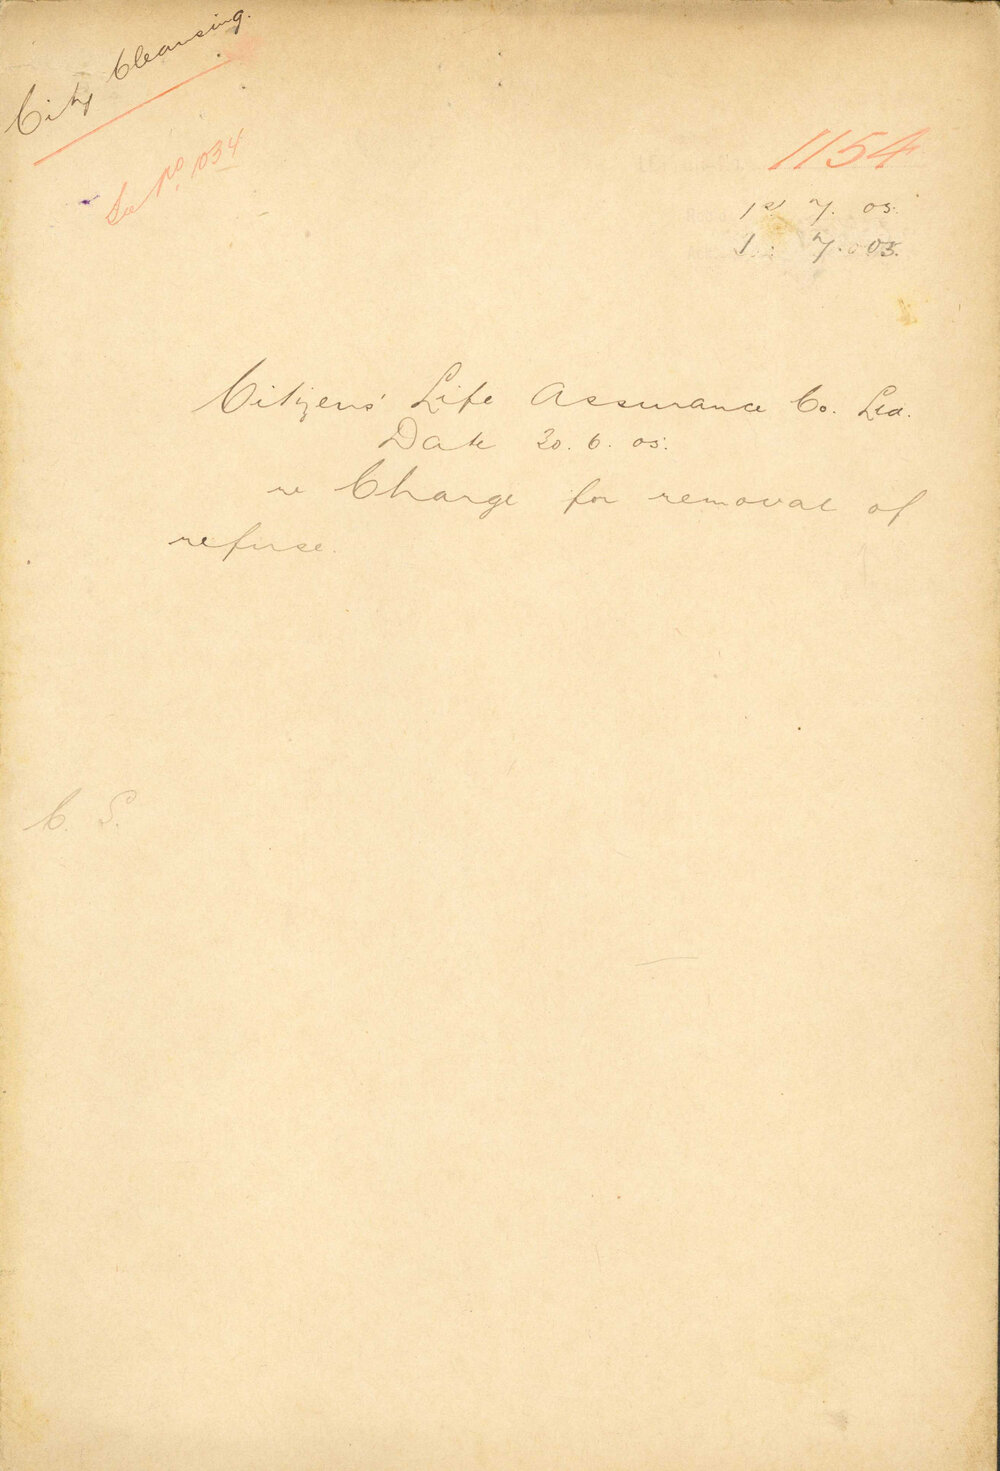 City Cleansing.
See No. 1034
1154
1st 7. 05.
1. 7. 05.
Citizens' Life Assurance Co. Ltd.
Date 20. 6. 05.
re Charge for removal of
refuse.
C. S.